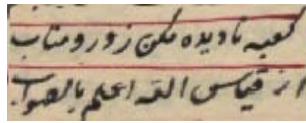 کعبه نادیده مکن زو رو متاب
از قیاس الله اعلم بالصواب